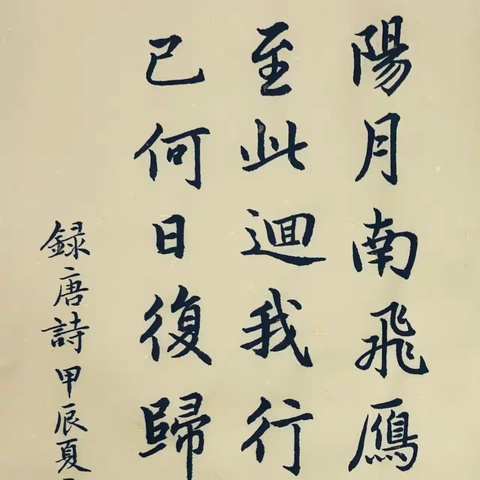 陽月南飛鴈
至此迴我行
已何日復歸
録唐詩甲辰夏